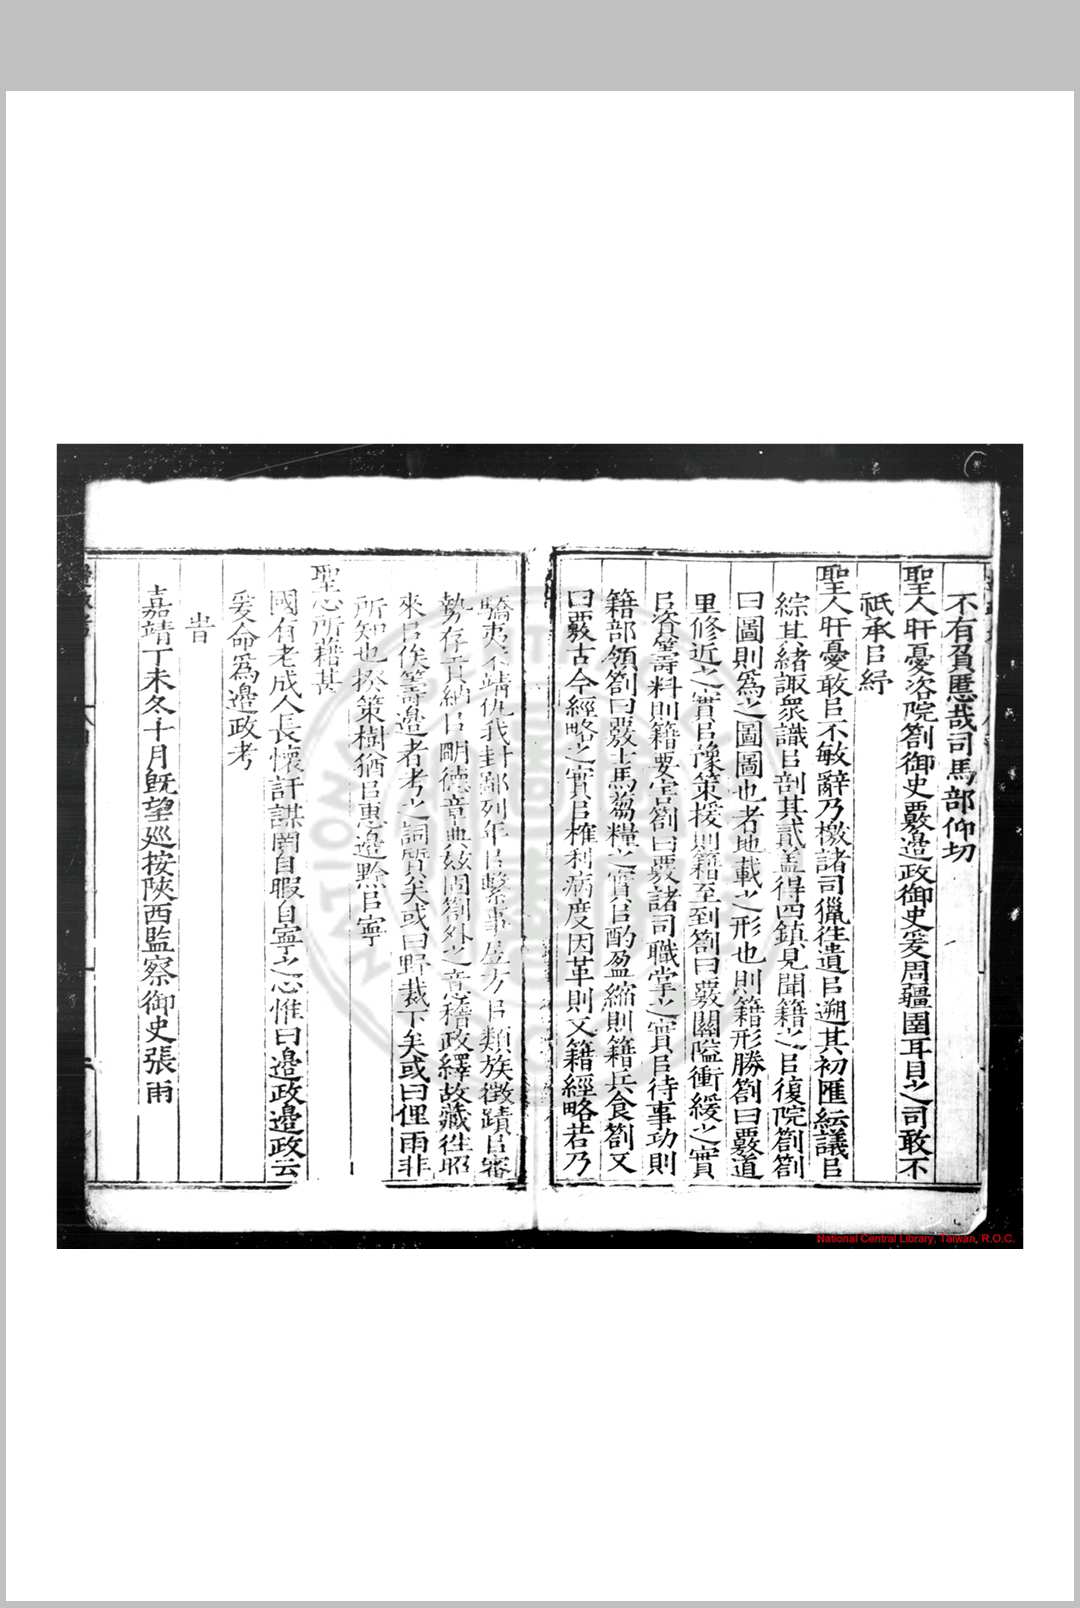 不有貟慝哉司馬部仰切
聖人旰憂洛院劄御史覈邉政御史爰周疆圉耳目之司敢不
祇承㠯紓
聖人旰憂敢㠯不敏辭乃檄諸司獵往遺㠯遡其初匯紜議㠯
綜其緒諏衆識㠯剖其貳盖得四鎮見聞籍之㠯復院劄劄
曰圖則為之圖圖也者地載之形也則籍形勝劄曰覈道
里修近之實㠯豫策援則籍至到劄曰覈關隘衝緩之實
㠯資籌料則籍要害劄曰覈諸司職掌之實㠯待事功則
籍部領劄曰覈士馬芻糧之實㠯酌盈縮則籍兵食劄又
曰覈古今經略之實㠯榷利病度因革則又籍經略若乃
驕夷不靖仇我封鄙列年㠯繫事㠯類族徵蹟㠯審
勢存貢納㠯明德章典兹固劄外之意稽政繹故藏徃昭
來㠯俟籌邉者考之詞質矣或曰野裁下矣或曰俚雨非
所知也揆策樹猶㠯惠邉黔㠯寧
聖心所藉甚
國有老成人長懷訏謀罔自暇自寧之心惟曰邉政邉政云
爰命為邉政考
旹
嘉靖丁未冬十月既望廵按陝西監察御史張雨
National Central Library, Taiwan, R.O.C.